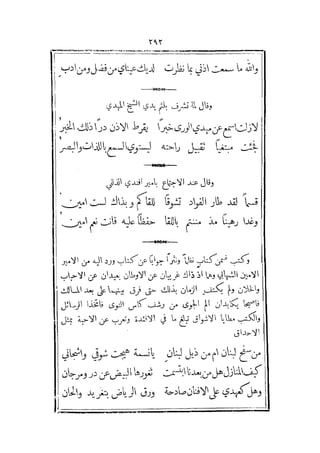 ٢٩٣
والله ما سمعت اذني بما نظرت لديك عيناي من فضل ومن ادب
وقال لما تشرف بلثم يدي الشيخ المهدي
لازلت اسمع عن مهدي الورى خبرًا يقرط الاذن درًا ذلك الخبر
فجئت مبتغيًا تقبيل راحته ليستوي السمع باللذات والبصر
وقال عند الاجتماع بامير افندي
قسمًا لقد طار الفواد تشوقًا للقاكم وبذاك لست امين
وغدا رهينًا مذ مننتم باللقا حفظًا عليه فانت نعم امين
وكتب ضمن كتاب نظمًا ونثرًا جوابًا عن كتاب ورد اليه من الامير
الامين الشهابي وهما اذ ذاك غريبان عن الاوطان بعيدان عن الاحباب
والخلان ولم يكتفِ الزمان بذلك حتى فرق بينهما على بعد المسالك
فاصبحا يكابدان الم الجوى من رشف كاس النوى فاتخذا الرسائل
والكتب مطايا الاشواق تبلغ ما في الافئدة وتعرب عن الاحبة بمثل
الاحداق
من سفح لبنان ام من ذيل لبنان يانسمة هيجت شوقي واشجاني
كيف المنازل هل من بعدنا ابتسمت ثغورها البيض عن در ومرجان
وهل كعهدي على الافنان صادحة ورق الرياض بتغريد والحان